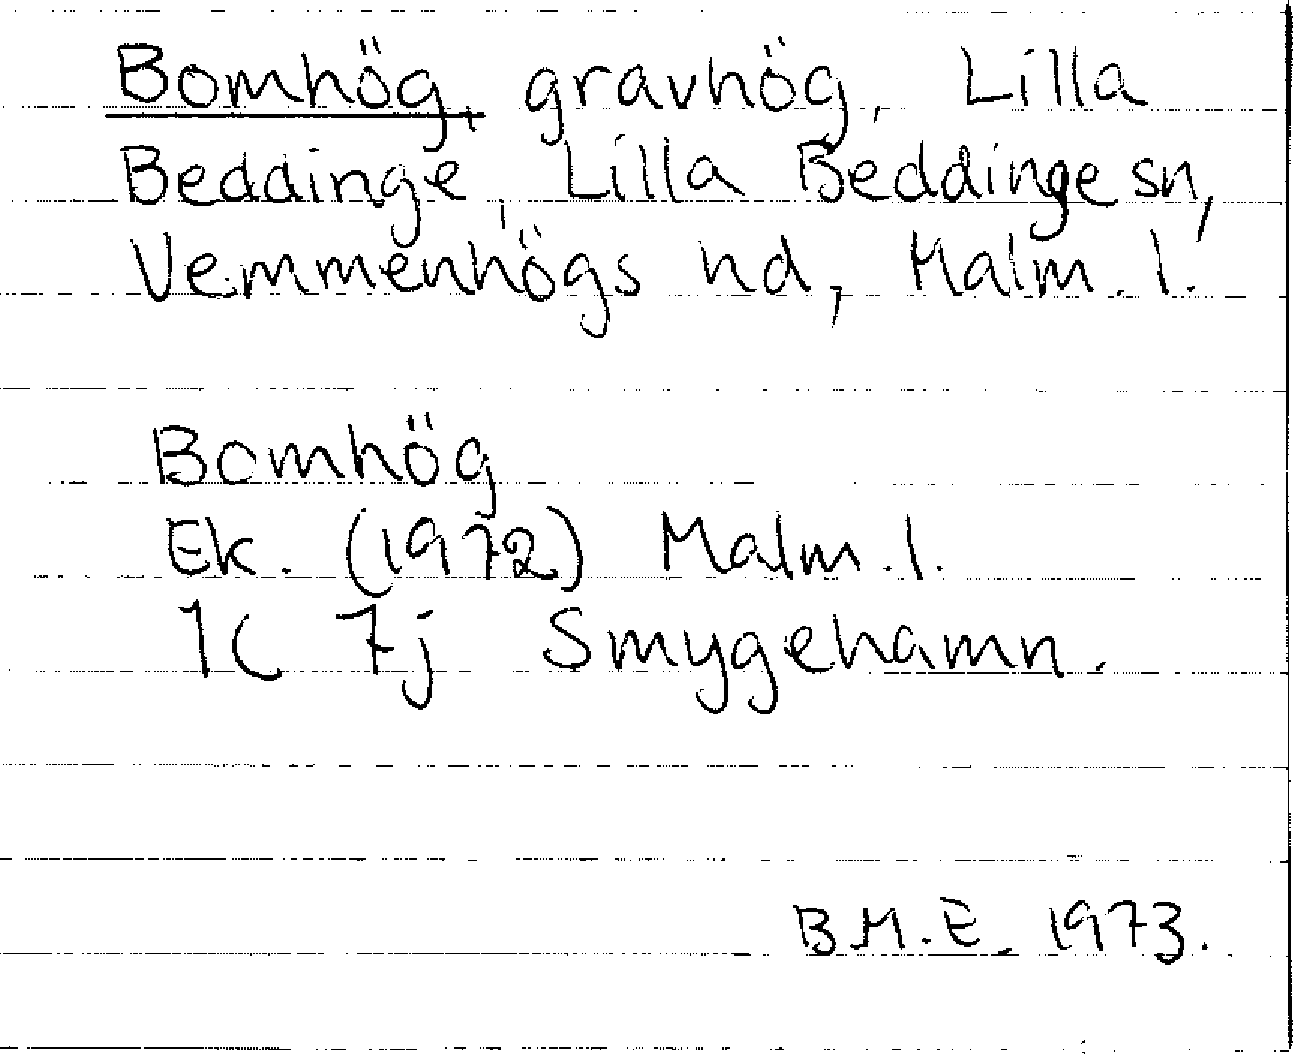 Bomhög, gravhög, Lilla
Beddinge, Lilla Beddinge sn,
Vemmenhögs hd, Malm. l.
Bomhög
Ek. (1972) Malm. l.
1C 7j Smygehamn.
B.M.E. 1973.